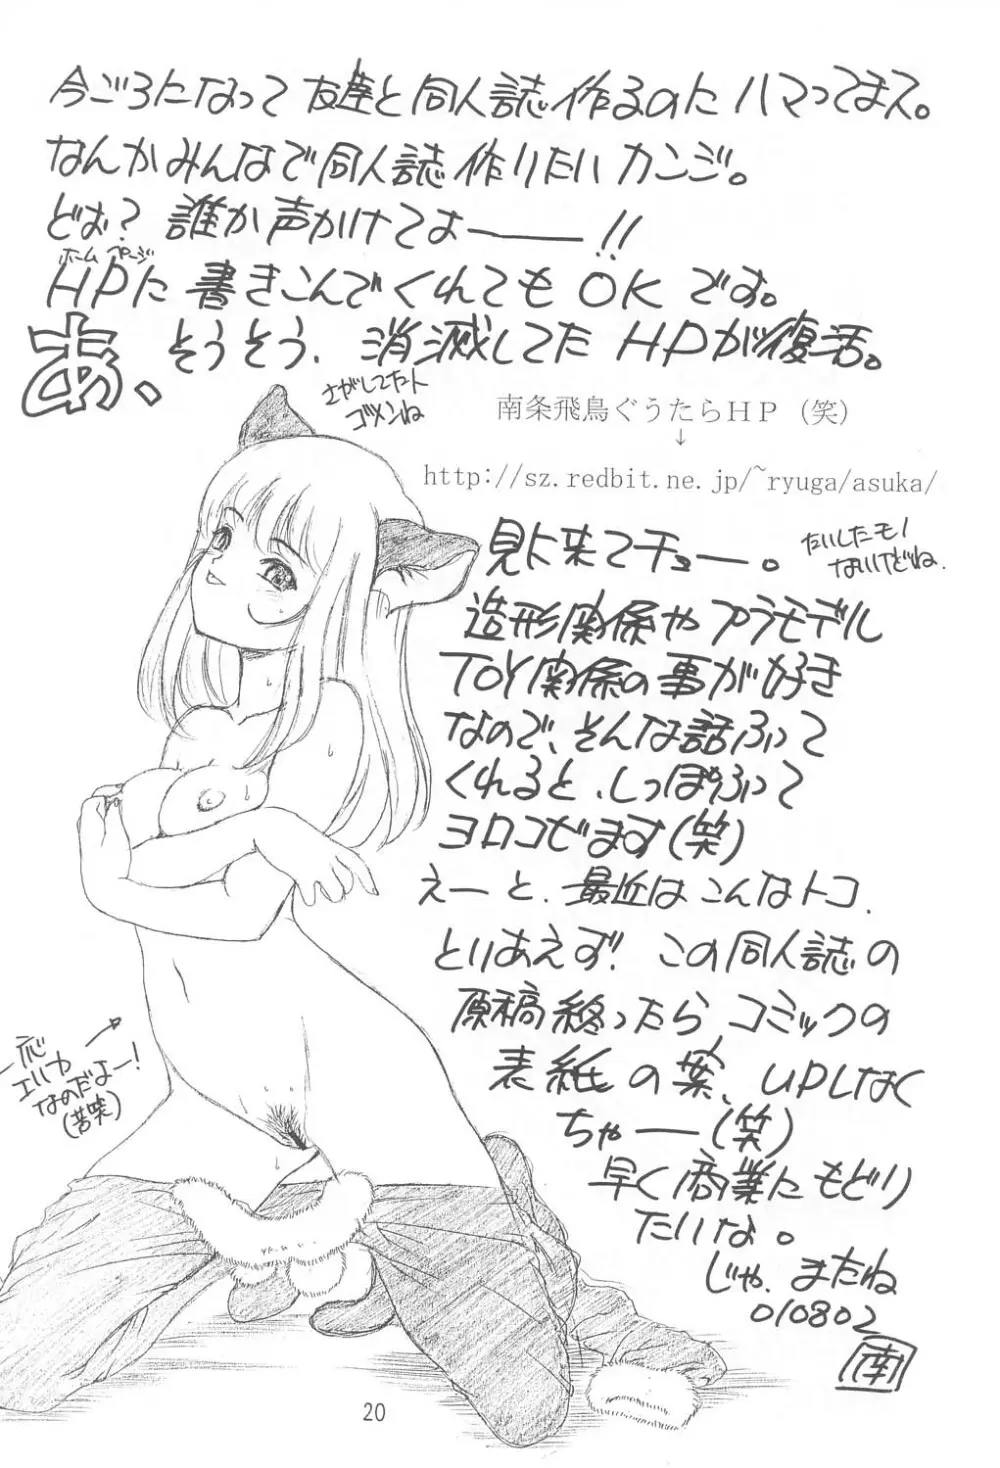 今ごろになって友達と同人誌作るのにハマってます。
なんかみんなで同人誌作りたいカンジ。
どお？誰か声かけてよーー!!
ホームページ
HPに書きこんでくれてもOKです。
あ、そうそう、消滅してたHPが復活。
さがしてたヒト
ゴメンね
南条飛鳥ぐうたらHP（笑）
↓
http://sz.redbit.ne.jp/~ryuga/asuka/
見に来てチューー。
たいしたモノ
ないけどね.
造形関係やプラモデル
TOY関係の事が好き
なので、そんな話ふって
くれると、しっぽふって
ヨロコビます(笑)
えーと、最近はこんなトコ、
とりあえず!この同人誌の
原稿終ったら、コミックの
表紙の案、UPしなく
ちゃー(笑)
早く商業にもどり
たいな。
じゃ、またね
010802
南
一応
エルカ
なのだよー!
(苦笑)
20